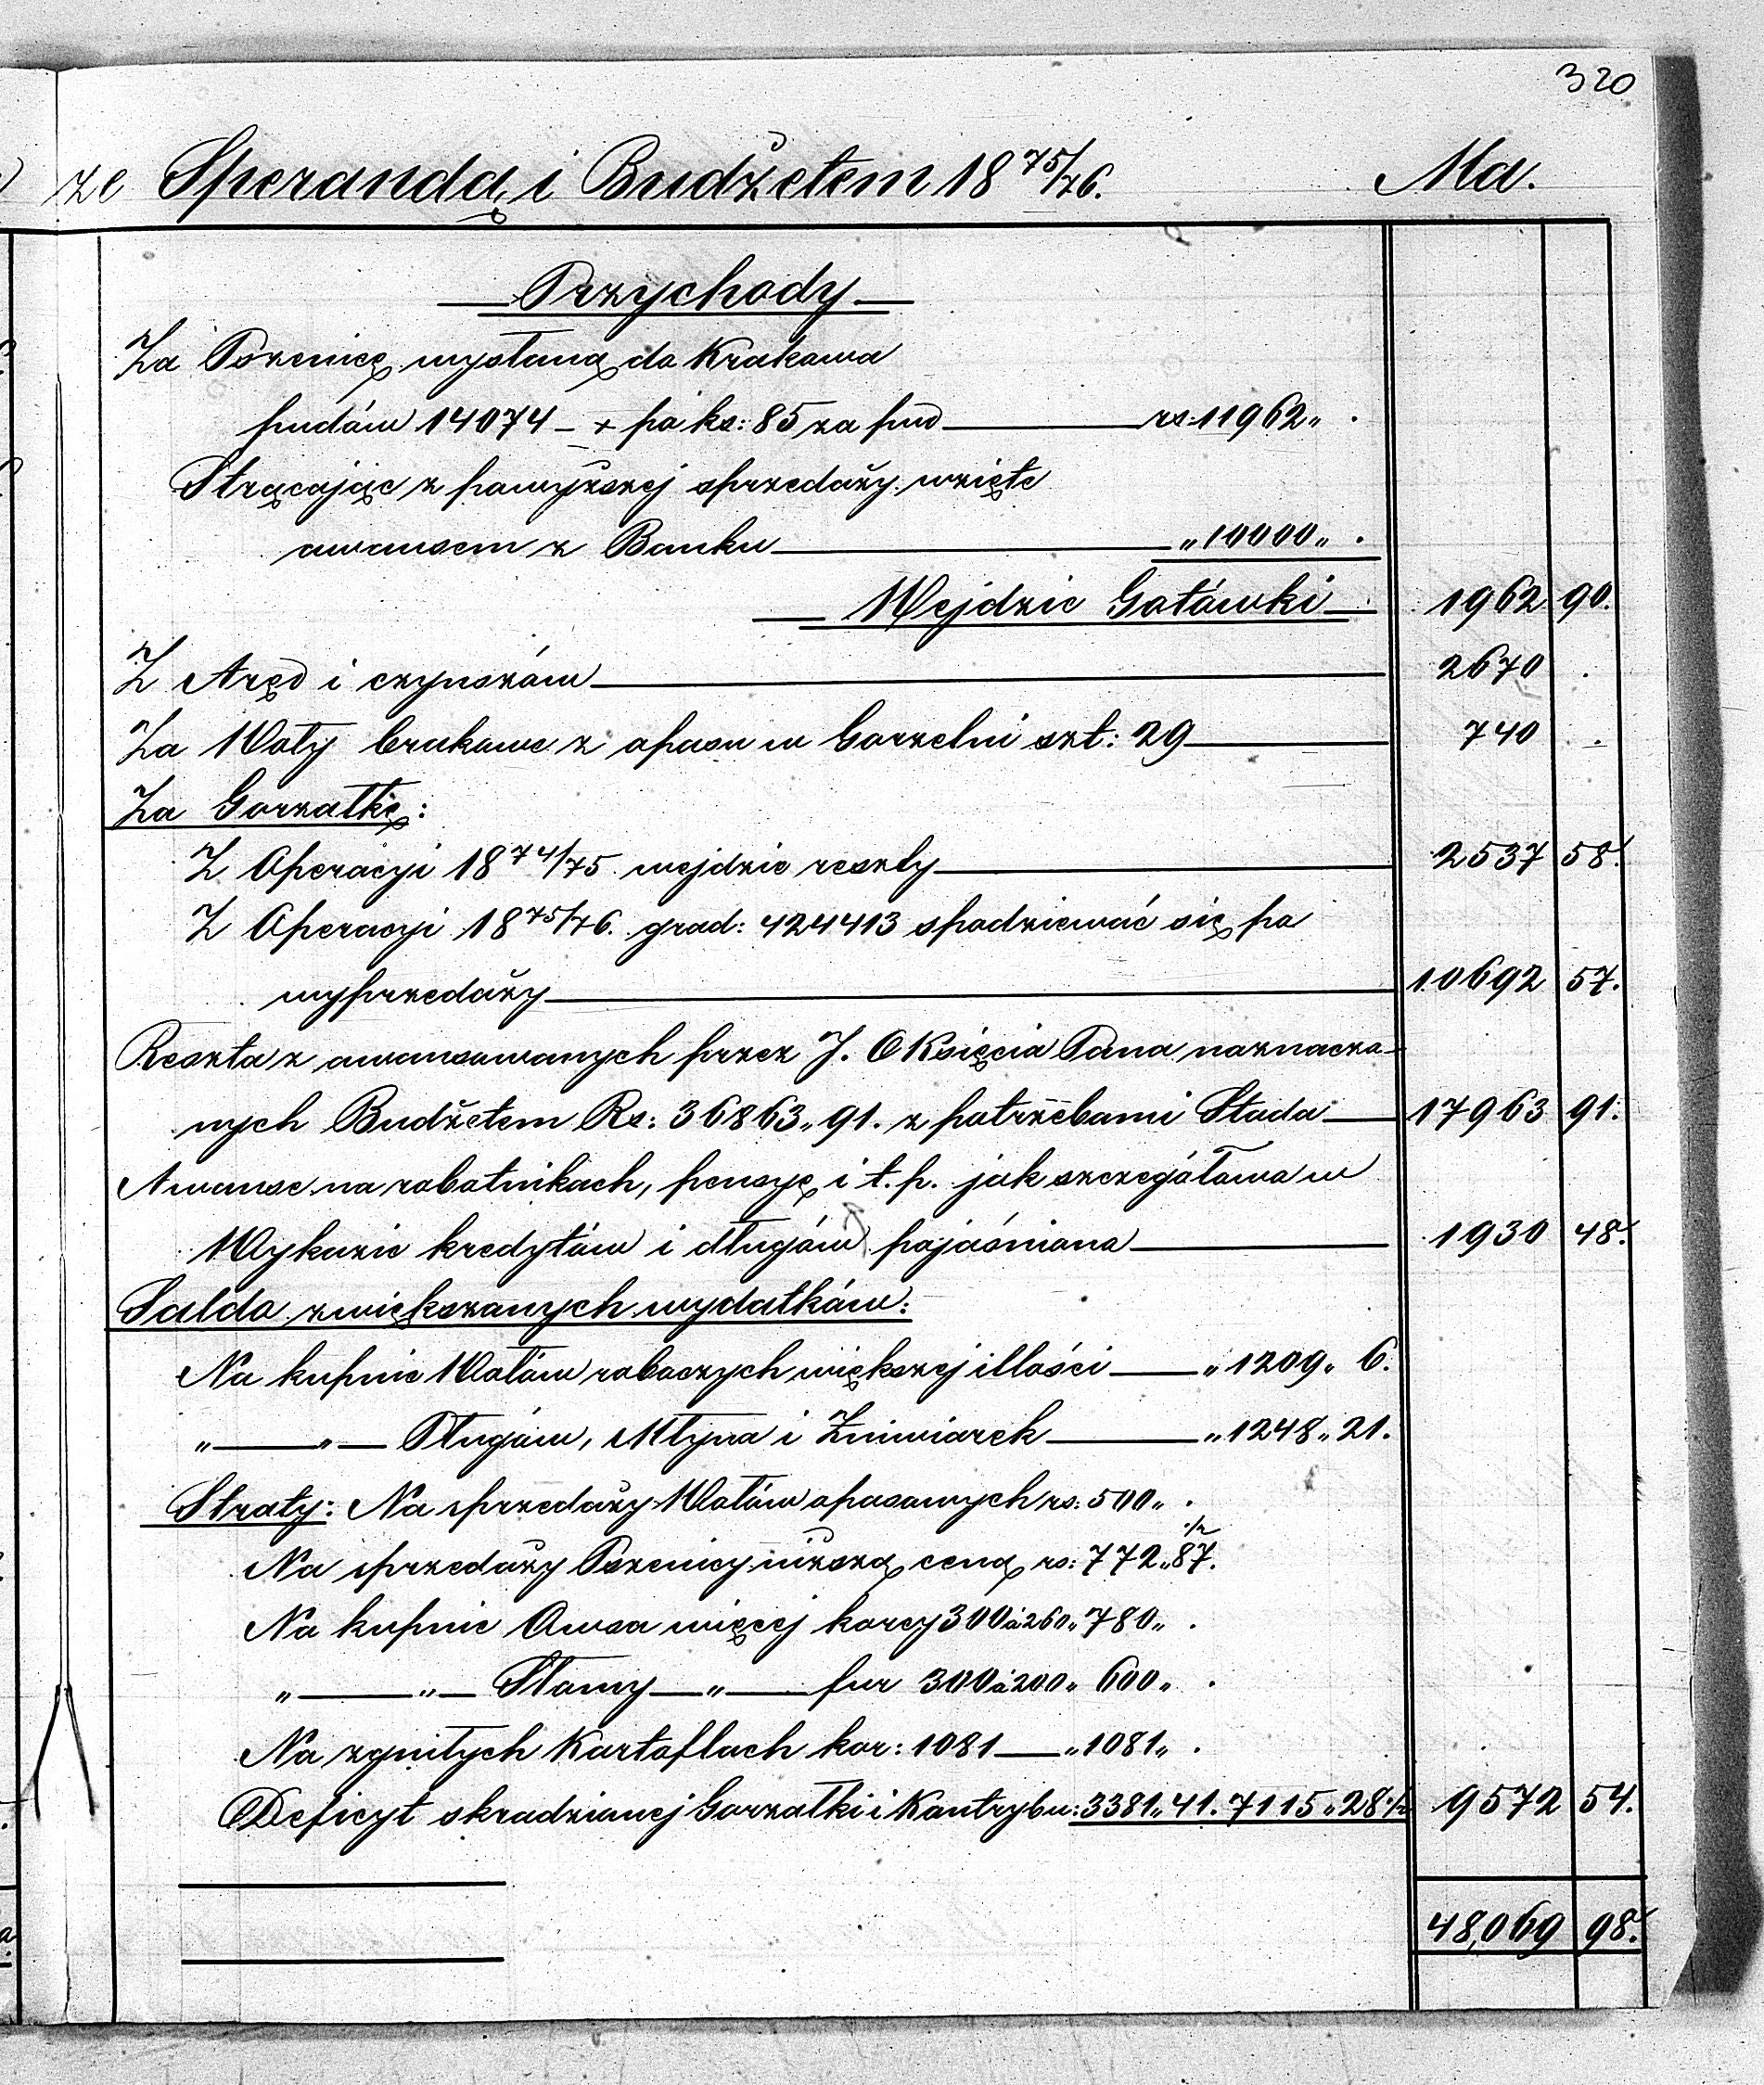 320
ze Sperandą i Budżetem 18 75/76. Ma.
Przychody
Za Pszenicę wysłaną do Krakowa
pudów 14074 - + po ks: 85 za pud rs: 11962 „ .
Strącając z powyższej sprzedaży wzięte
awansem z Banku „ 10000 „ .
Wejdzie Gotówki 1962 90.
Z Aręd i czynszów 2670 .
Za Woły brakowe z opasu w Gorzelni szt: 29 740 .
Za Gorzałkę:
Z Operacyi 18 74/75 wejdzie reszty 2537 58.
Z Operacyi 18 75/76. grad: 424413 spodziewać się po
wyprzedaży 10692 57.
Reszta z awansowanych przez J. O Księcia Pana naznaczo-
nych Budżetem Rs: 36863 „ 91. z potrzebami Stada 17963 91.
Awanse na robotnikach, pensye i t. p. jak szczegółowo w
Wykazie kredytów i długów pojaśniono 1930 48.
Salda zwiększonych wydatków:
Na kupnie Wołów roboczych większej illości „ 1209 „ 6.
„ „ Pługów, Młyna i Żniwiarek „ 1248 „ 21.
Straty: Na sprzedaży Wołów opasowych rs: 500 „ .
Na sprzedaży Pszenicy niższą ceną rs: 772 „ 87. 1/2
Na kupnie Owsa więcej korcy 300 à 260 „ 780 „ .
„ „ Słomy „ fur 300 à 200 „ 600 „ .
Na zgniłych Kartoflach kor: 1081 „ 1081 „ .
Deficyt skradzionej Gorzałki i Kontrybu: 3381 „ 41. 7115 „ 28 1/2 9572 54.
48,069 98.